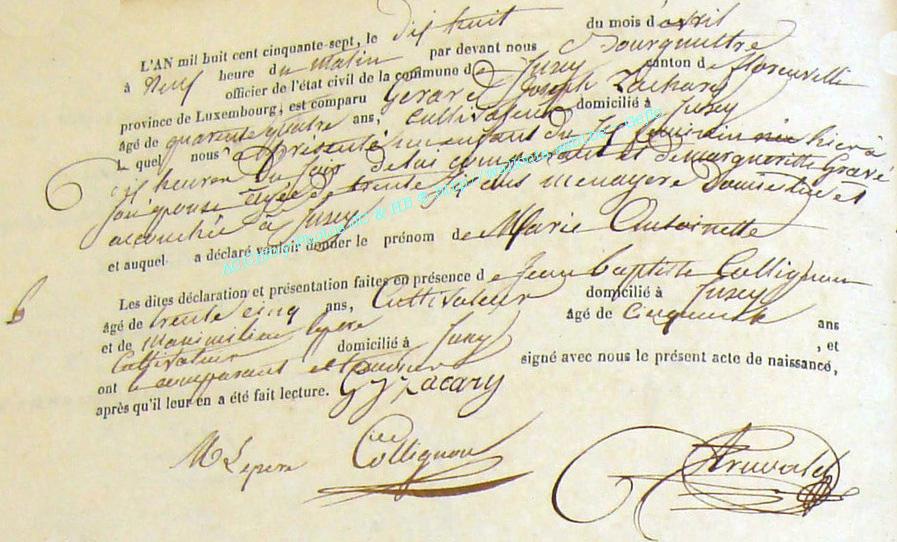 L'AN mil huit cent cinquante-sept, le dix huit du mois d'avril
à Neuf heure du matin par devant nous Bourgmestre
officier de l'état civil de la commune de Jusey canton de florenville
province de Luxembourg, est comparu Gérard Joseph Zachary
âgé de quarante quatre ans, Cultivateur domicilié à Jusey
L quel nous a présenté un enfant du féminin née hier à
six heures du soir de lui comparant et de margueritte Gravé
son épouse agée de trente six ans menagere domiciliée et
accouchée à Jusey
et auquel a déclaré vouloir donner le prénom de Marie Antoinette
6
Les dites déclaration et présentation faites en présence de Jean baptiste Collignon
âgé de trente cinq ans, Cultivateur domicilié à Jusey
et de Maximilien Lepere âgé de cinquante ans
Cultivateur domicilié à Jusey , et
ont le comparant et témoins signé avec nous le présent acte de naissance,
après qu'il leur en a été fait lecture. G J Zacary
M Lepere Collignon